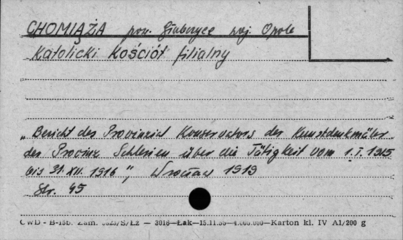 CHOMIĄŻA pow. Głubczyce woj. Opole
Katolicki Kościół filialny
„Bericht des Provinzial Konservators der Kunstdenkmäler
der Provinz Schlesien über die Tätigkeit vom 1.I.1915
bis 31.XII.1916", Wrocław 1919
Str. 45
2016—Łak—15.11.50—4.000.000—Karton kl. IV A1/200 g